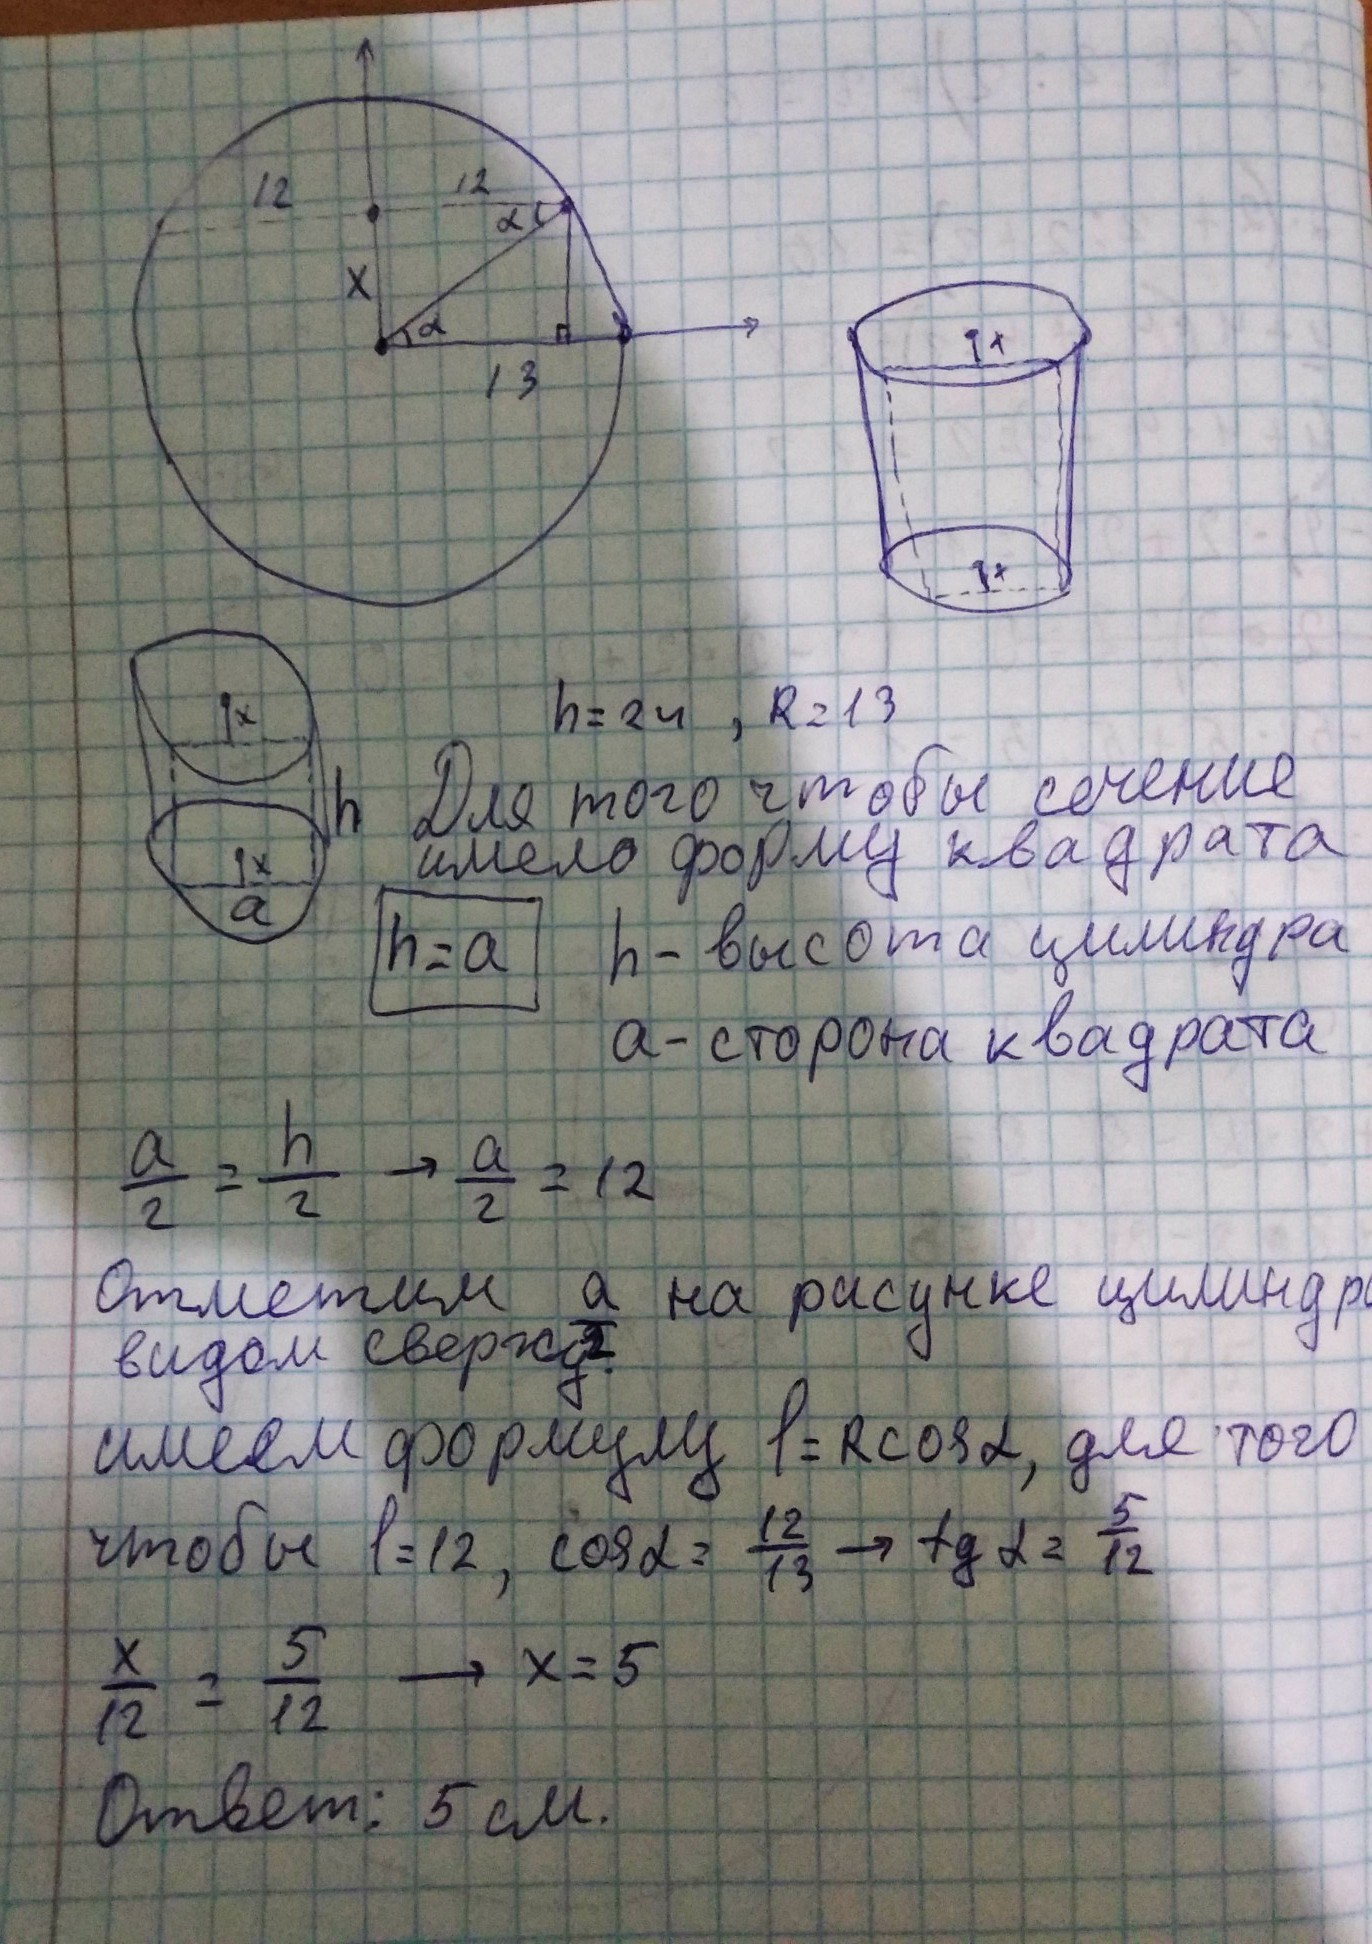 12 12
α
x
α
13
x
x
x
h
x
a
h=24, R=13
Для того чтобы сечение
имело форму квадрата
h=a h - высота цилиндра
a - сторона квадрата
a/2 = h/2 → a/2 = 12
Отметим a/2 на рисунке цилиндра
видом сверху.
имеем формулу l=Rcosα, для того
чтобы l=12, cosα= 12/13 → tgα= 5/12
x/12 = 5/12 → x=5
Ответ: 5 см.